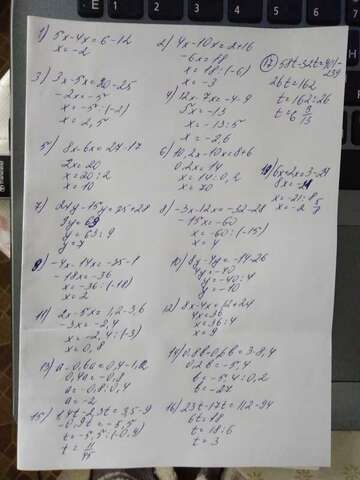 1) 5x-4x=6-12
x=-2
2) 4x-10x=2+16
-6x=18
x=18:(-6)
x=-3
3) 3x-5x=20-25
-2x=-5
x=-5:(-2)
x=2,5
4) 12x-7x=-4-9
5x=-13
x=-13:5
x=-2,6
5) 8x-6x=24-17
2x=20
x=20:2
x=10
6) 10,2x-10x=8+6
0,2x=14
x=14:0,2
x=70
7) 24y-15y=25+28
9y=63
y=63:9
y=7
8) -3x-12x=-32-28
-15x=-60
x=-60:(-15)
x=4
9) -4x-14x=-35-1
-18x=-36
x=-36:(-18)
x=2
10) 8y-4y=-14-26
4y=-40
y=-40:4
y=-10
11) 2x-5x=1,2-3,6
-3x=-2,4
x=-2,4:(-3)
x=0,8
12) 8x-4x=12+24
4x=36
x=36:4
x=9
13) a-0,6a=0,4-1,2
0,4a=-0,8
a=-0,8:0,4
a=-2
14) 0,8b-0,6b=3-8,4
0,2b=-5,4
b=-5,4:0,2
b=-27
15) 1,4t-2,3t=3,5-9
-0,9t=-5,5
16) 23t-17t=112-94
6t=18
t=18:6
t=3
17) 58t-32t=401-
239
26t=162
t=162:26
t=6 3/13